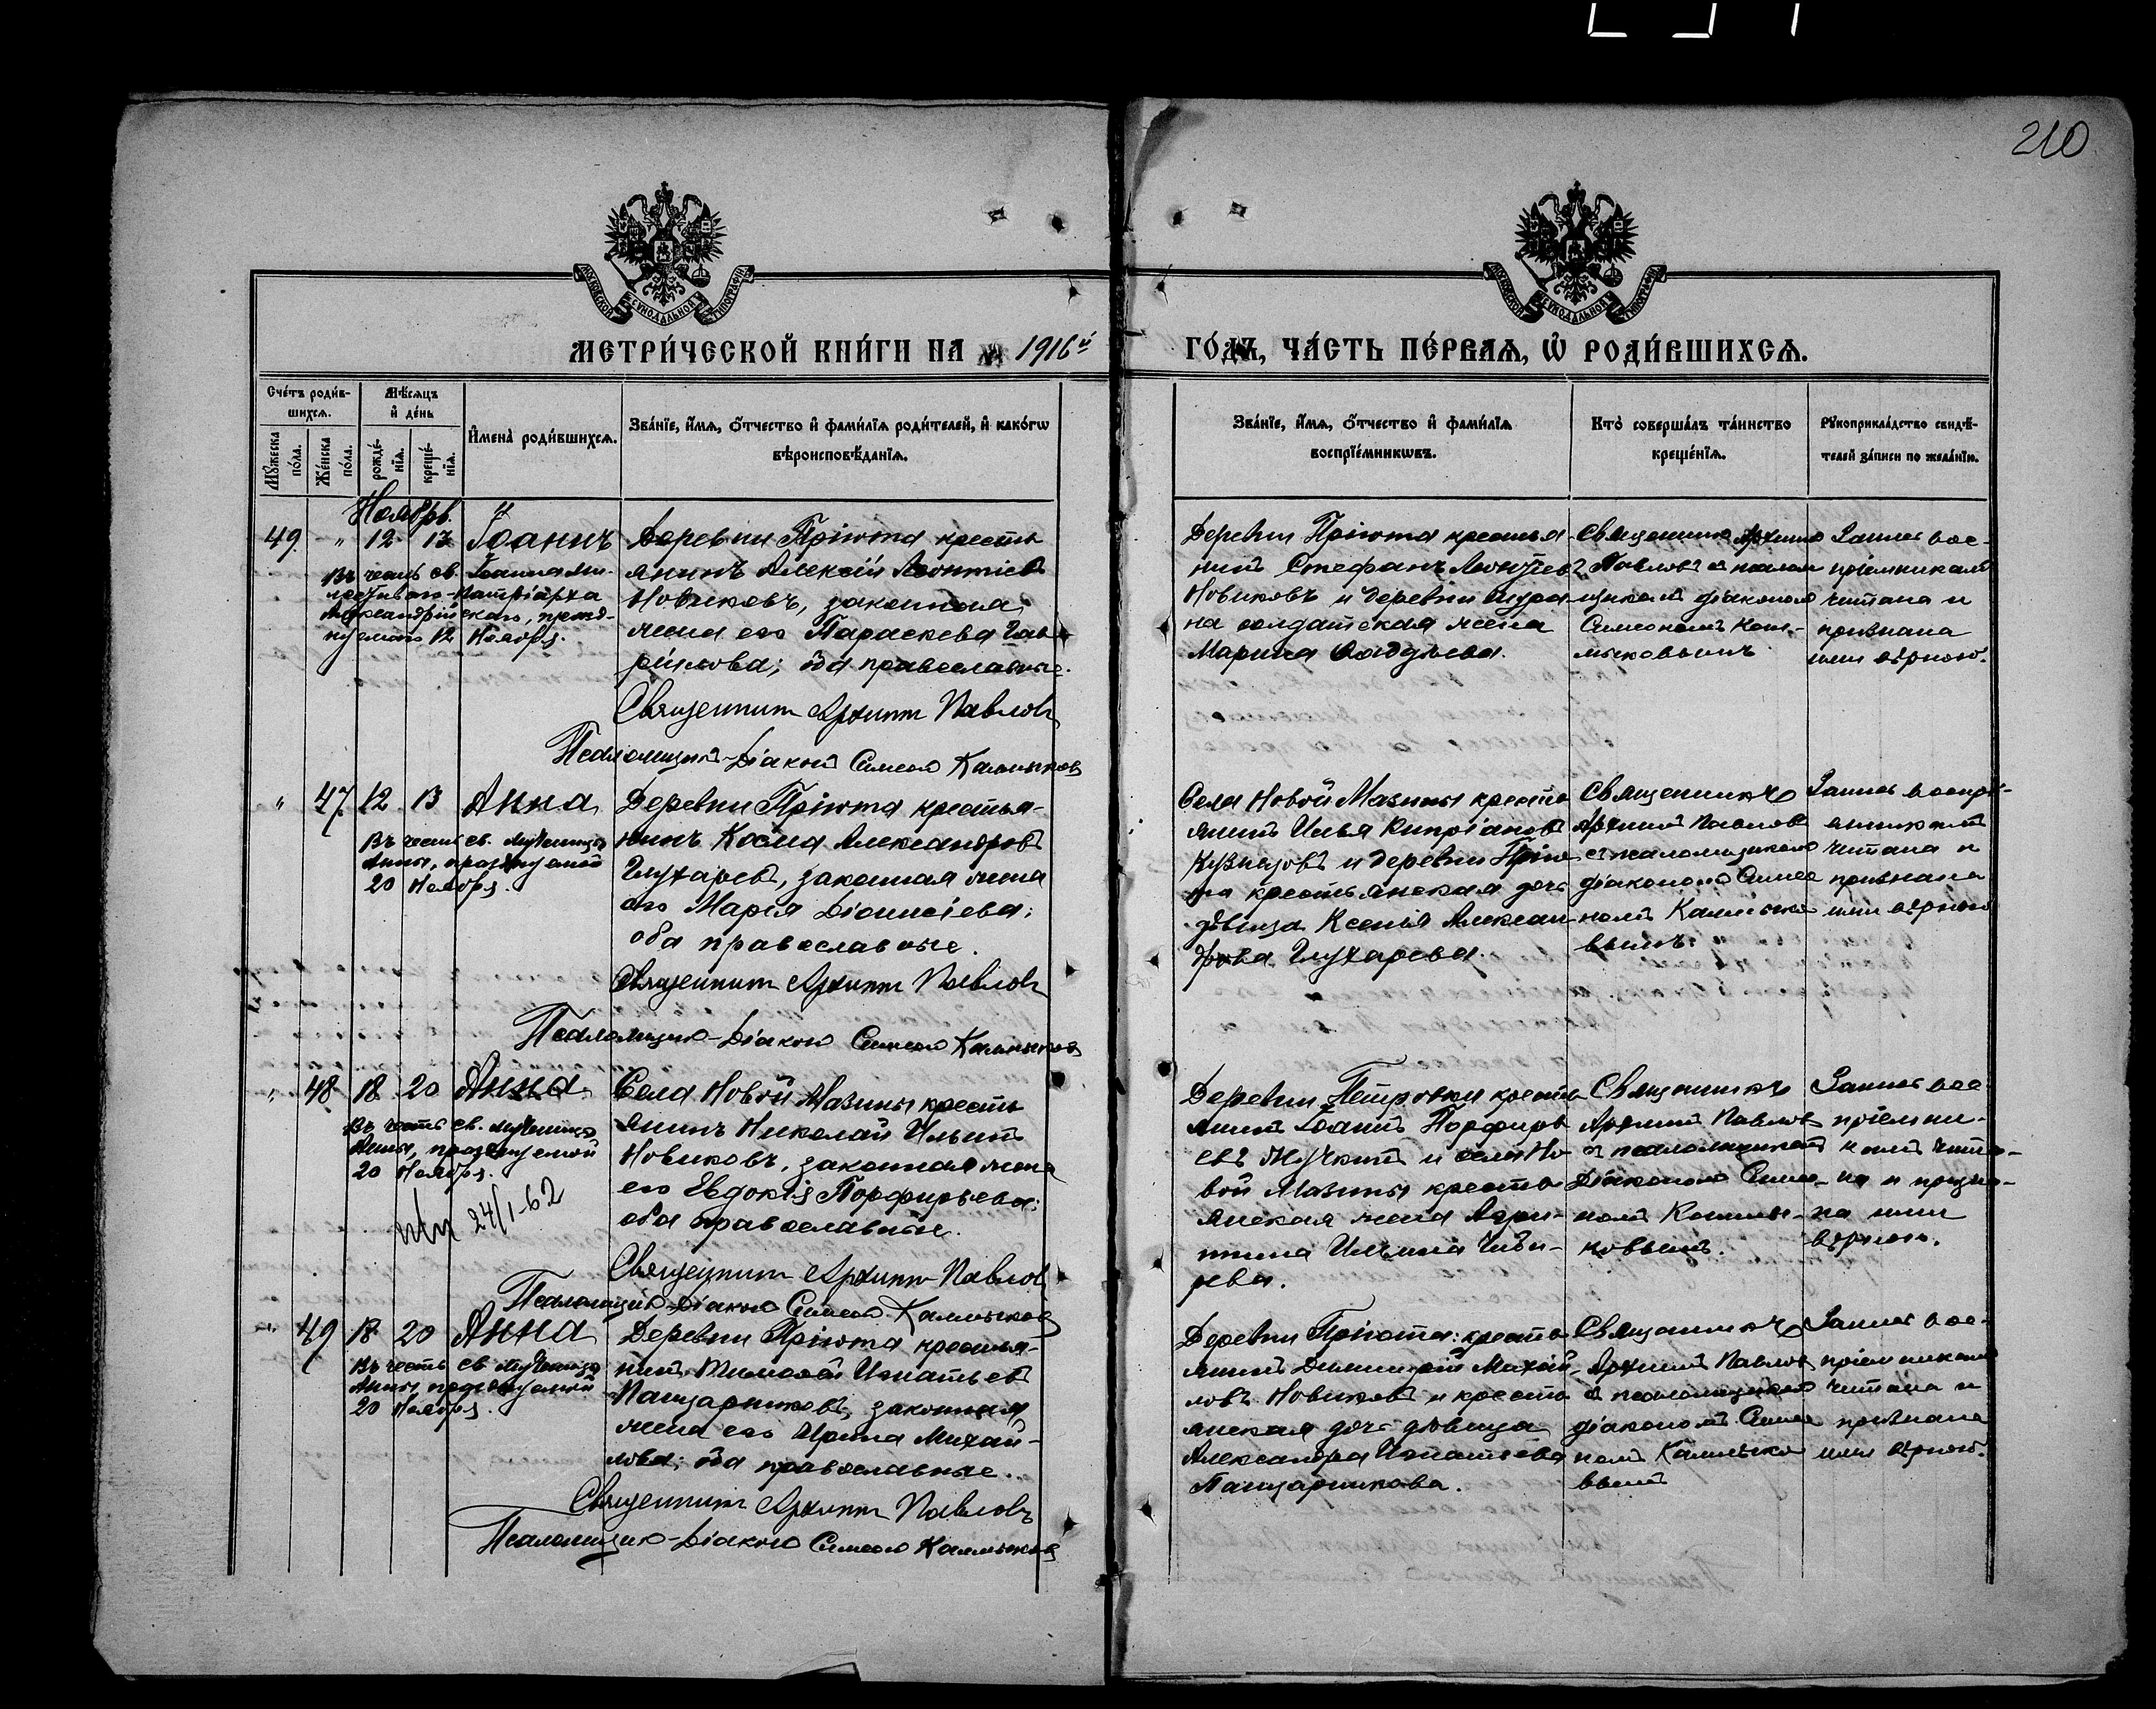 210
МОСКОВСКОЙ СѴНОДАЛЬНОЙ ТИПОГРАФІИ
МОСКОВСКОЙ СѴНОДАЛЬНОЙ ТИПОГРАФІИ
МЕТРИ́ЧЕСКОЙ КНИ́ГИ НА 1916й
ГО́ДЪ, ЧА́СТЬ ПЕ́РВАѦ, Ѡ҆ РОДИ́ВШИХСѦ.
Сче́тъ роди́в-
шихсѧ.
Мꙋ́жеска
по́ла.
Же́нска
по́ла.
Мѣ́сѧцъ
и҆ де́нь
рожде́-
нїѧ.
креще́-
нїѧ.
И҆мена̀ роди́вшихсѧ.
Зва́нїе, и҆́мѧ, ѻ҆́тчество и҆ фами́лїѧ роди́телей, и҆ како́гѡ
вѣроисповѣ́данїѧ.
Зва́нїе, и҆́мѧ, ѻ҆́тчество и҆ фами́лїѧ
воспрїе́мникѡвъ.
Кто̀ соверша́лъ та́инство
креще́нїѧ.
Рꙋкоприкла́дство свидѣ́-
телей за́писи по жела́нїю.
Ноябрь.
49 " 12 13 Іоаннъ
Въ честь св. Іоанна Ми-
лостиваго-Патріарха
Александрійскаго, празд-
нуемаго 12 Ноября.
Деревни Пріюта кресть
янинъ Алексій Леонтіевъ
Новиковъ, законная
жена его Параскева Гав
рилова; оба православные.
Священникъ Архиппъ Павловъ
Псаломщикъ-Діаконъ Симеонъ Калмыковъ
Деревни Пріюта крестья-
нинъ Стефанъ Леонтіевъ
Новиковъ и деревни
на солдатская жена
Марина
Священникъ Архиппъ
Павловъ съ псалом
щикомъ діакономъ
Симеономъ Кал-
мыковымъ
Запись вос-
пріемниками
читана и
признана
ими вѣрною.
" 47 12 13 Анна
Въ честь св. мученицы
Анны, празднуемой
20 Ноября.
Деревни Пріюта крестья-
нинъ Косма Александровъ
Глухаревъ, законная жена
его Марія Діонисіева;
оба православные.
Священникъ Архиппъ Павловъ
Псаломщикъ-Діаконъ Симеонъ Калмыковъ
Села Новой Мазины кресть
янинъ Илья Кипріановъ
Кузнецовъ и деревни Прію
та крестьянская дочь
дѣвица Ксенія Алексан
дрова Глухарева.
Священникъ
Архиппъ Павловъ
съ псаломщикомъ
діакономъ Симео
номъ Калмыко
вымъ.
Запись воспрі-
емниками
читана и
признана
ими вѣрною
" 48 18 20 Анна.
Въ честь св. мученицы
Анны, празднуемой
20 Ноября.
24/I-62
Села Новой Мазины кресть
янинъ Николай Ильинъ
Новиковъ, законная жена
его Евдокія Порфирьева;
оба православные.
Священникъ Архиппъ Павловъ
Псаломщикъ-Діаконъ Симеонъ Калмыковъ
Деревни Петровки кресть
янинъ Іоаннъ Порфирь
евъ и села Но
вой Мазины кресть
янская жена Агри-
пина Ильина
Священникъ
Архиппъ Павловъ
съ псаломщикомъ
Діакономъ Симео-
номъ Калмы-
ковымъ.
Запись вос-
пріемни-
ками чита-
на и призна-
на ими
вѣрною.
" 49 18 20 Анна
Въ честь св мученицы
Анны, празднуемой
20 Ноября.
Деревни Пріюта крестья-
нинъ Тимофей Игнатьевъ
Панцарниковъ, законная
жена его Ирина Михай-
лова; оба православные.
Священникъ Архиппъ Павловъ
Псаломщикъ-Діаконъ Симеонъ Калмыковъ
Деревни Пріюта: кресть
янинъ Димитрій Михай-
ловъ Новиковъ и кресть
янская дочь дѣвица
Александра Игнатьева
Панцарникова.
Священникъ
Архиппъ Павловъ
съ псаломщикомъ
діакономъ Симео
номъ Калмыко
вымъ
Запись вос-
пріемниками
читана и
признана
ими вѣрною.